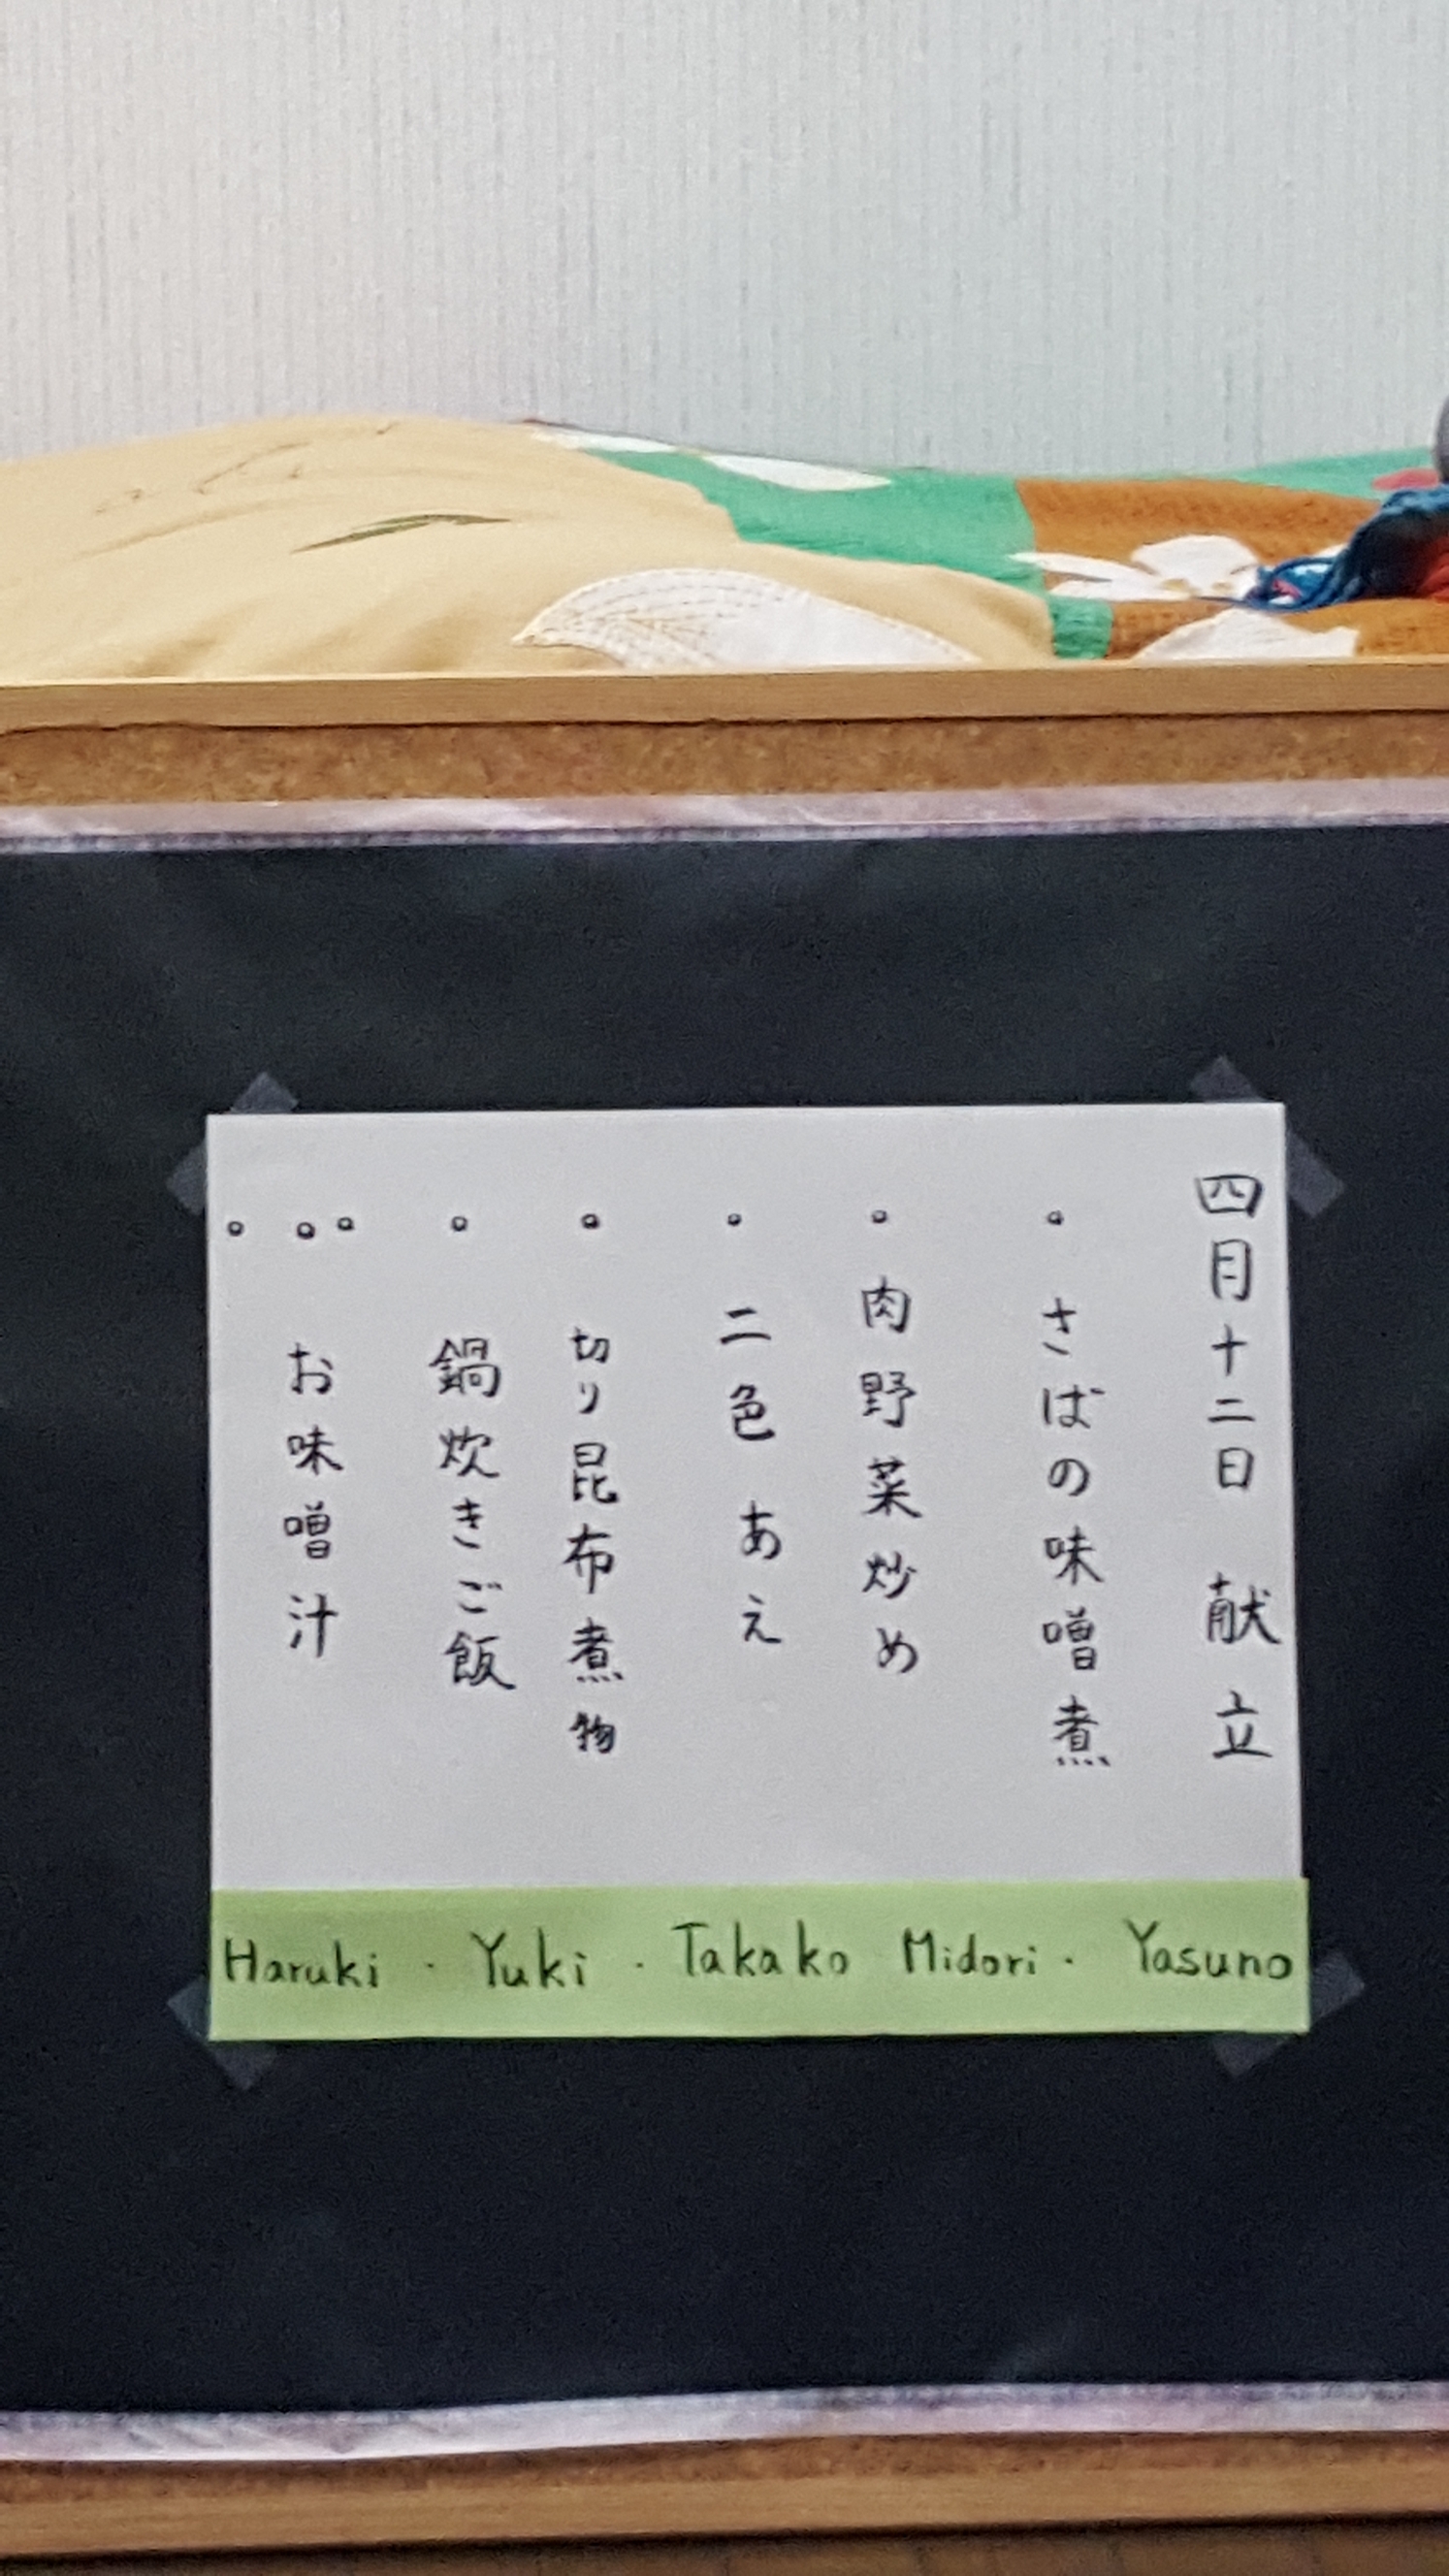 四月十二日 献立
• さばの味噌煮
• 肉野菜炒め
• 二色あえ
• 切り昆布煮物
• 鍋炊きご飯
• • お味噌汁
•
Haruki · Yuki · Takako Midori · Yasuno